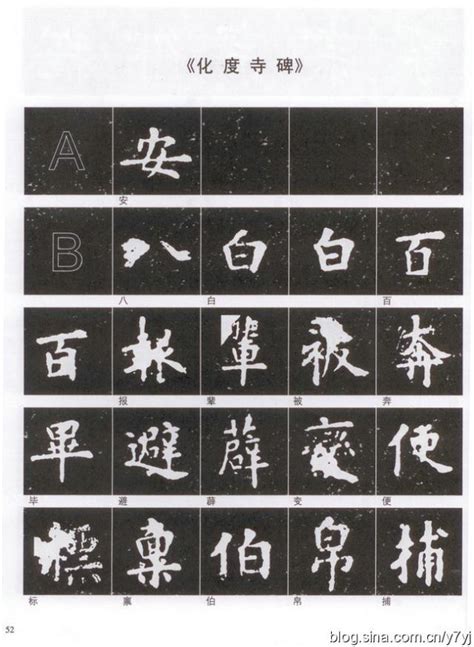 《化度寺碑》
A 安
安
B 八 白 白 百
八 白 百
百 報 輩 被 奔
报 辈 被 奔
畢 避 薜 變 便
毕 避 薜 变 便
標 稟 伯 帛 捕
标 禀 伯 帛 捕
52
blog.sina.com.cn/y7yj